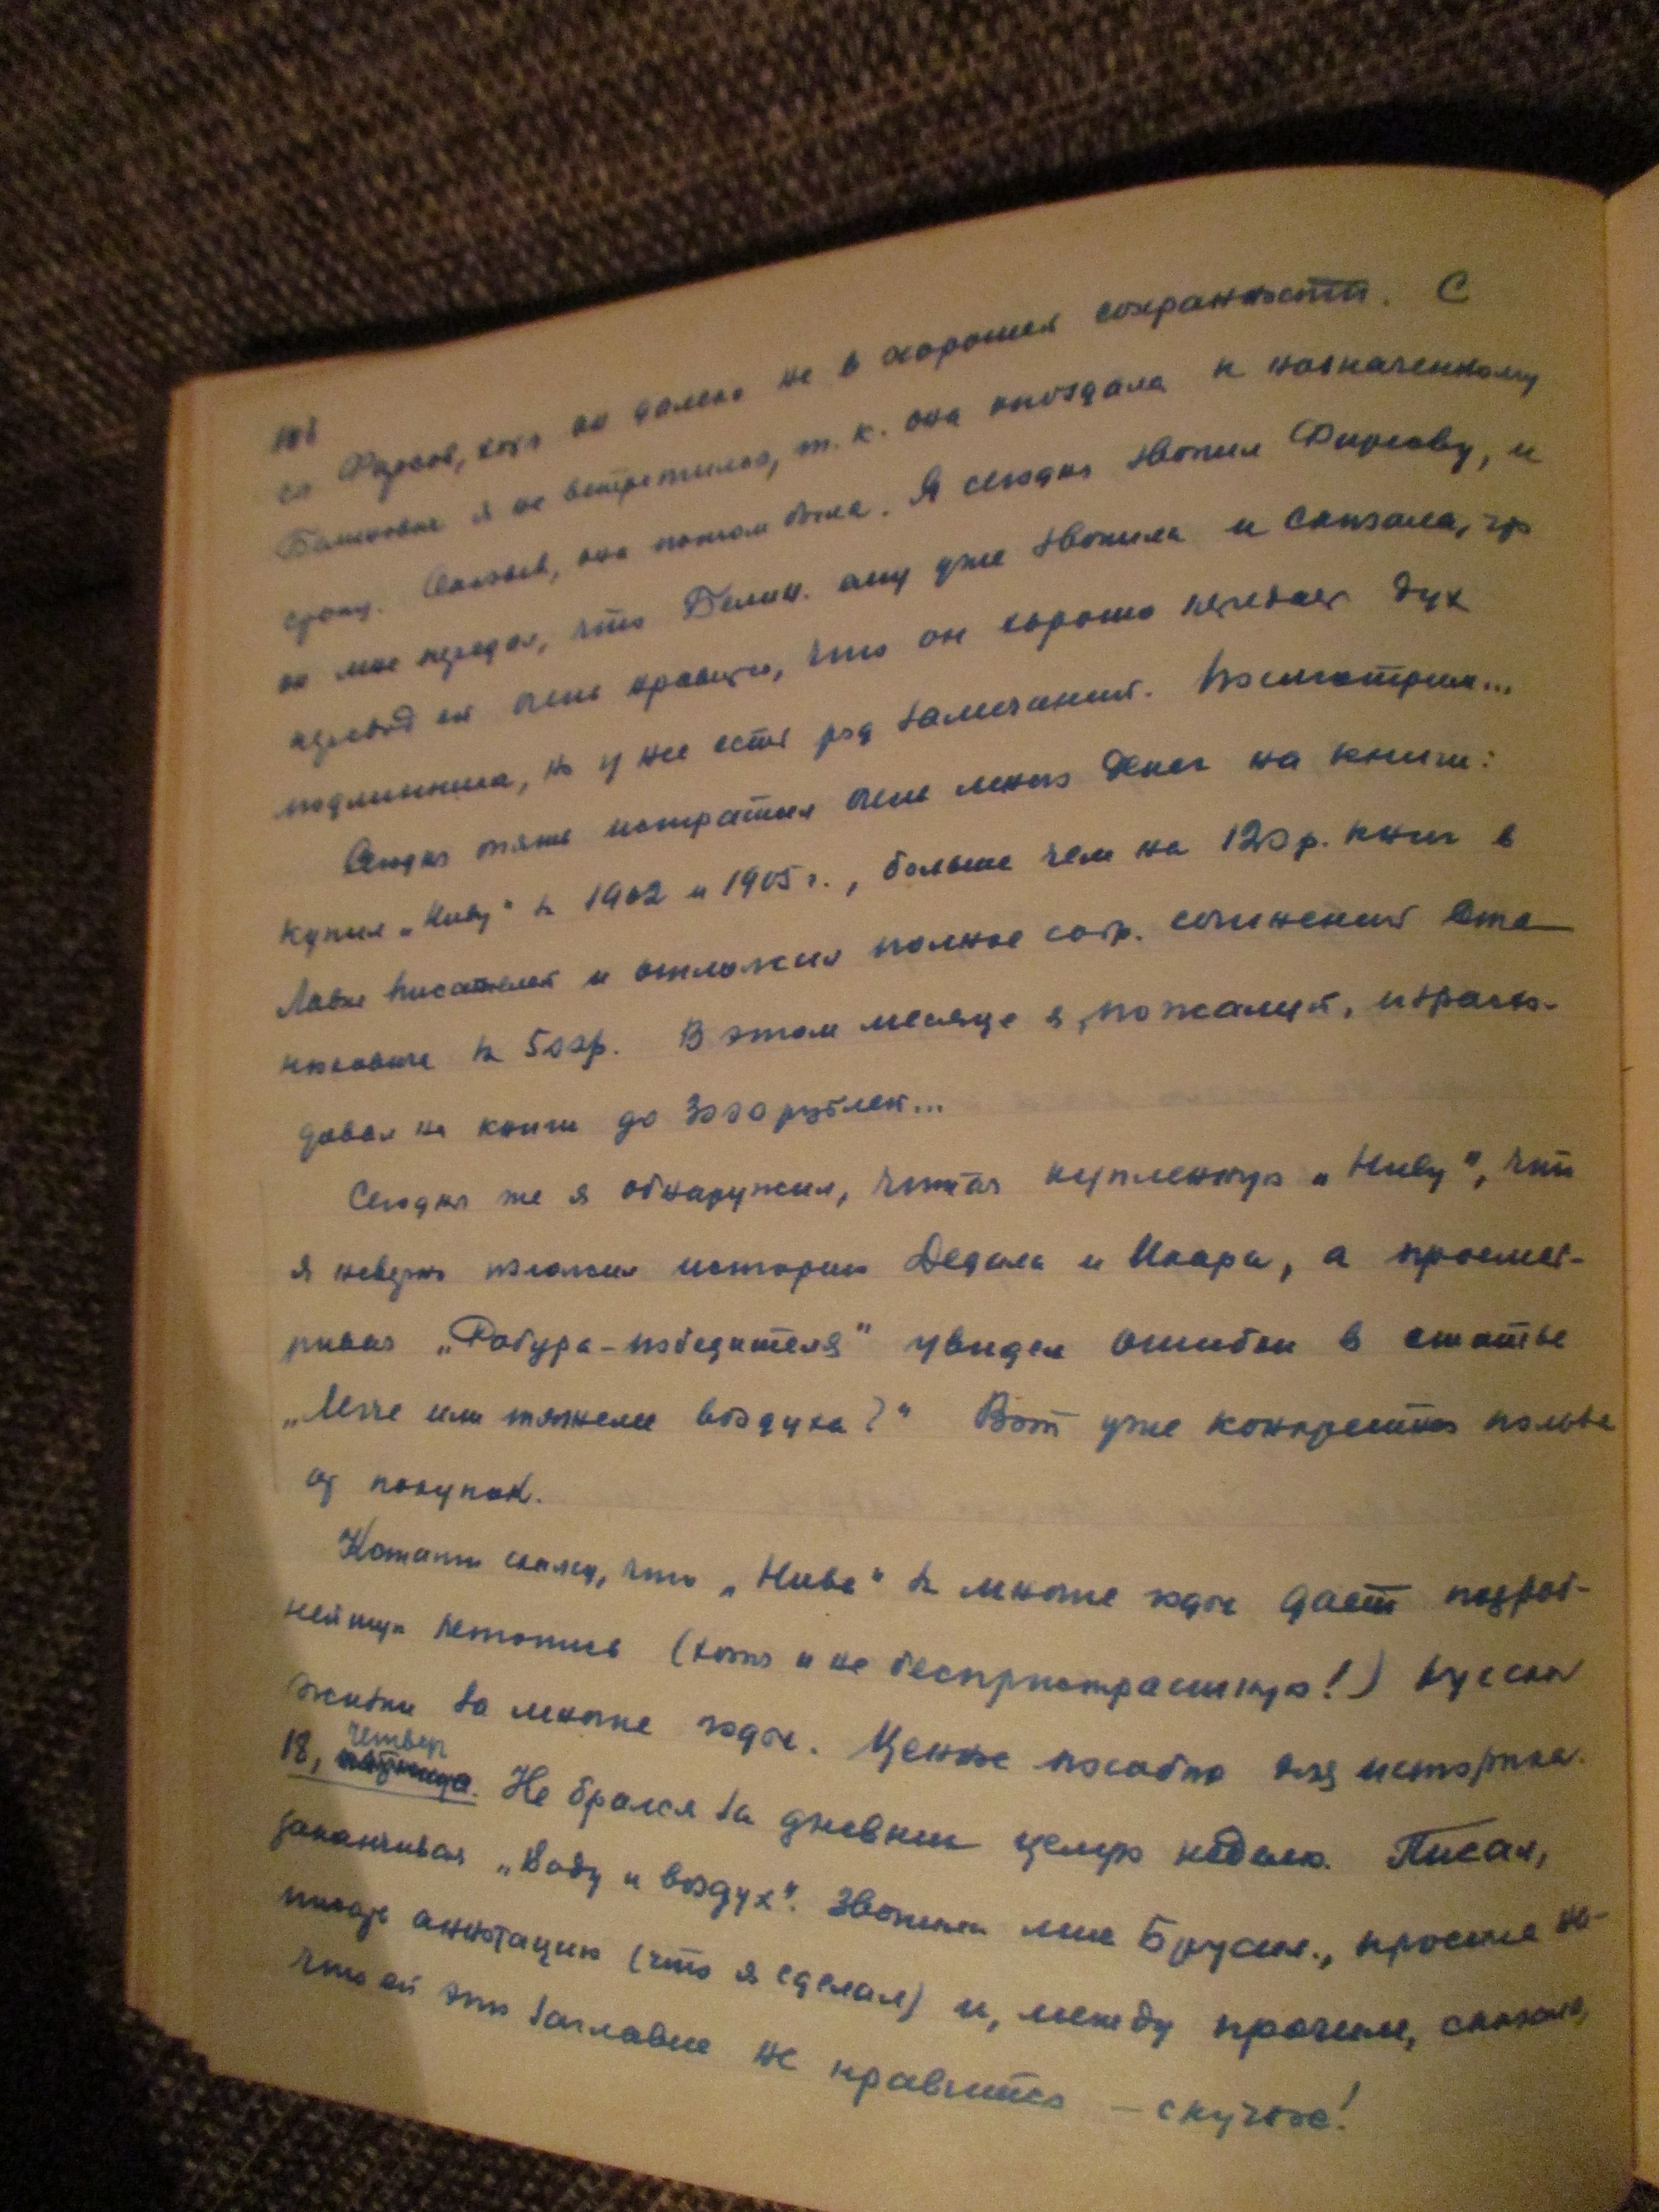 ся Фирсов, хотя он далеко не в хорошей сохранности. С
я не встретился, т.к. она опоздала к назначенному
сроку. она потом была. Я сегодня звонил Фирсову, и
он мне передал, что Белин. ему уже звонила и сказала, что
перевод ей очень нравится, что он хорошо передает дух
подлинника, но у нее есть ряд замечаний. Посмотрим...
Сегодня опять истратил очень много денег на книги:
купил „Ниву" за 1902 и 1905 г., больше чем на 120 р. книг в
Лавке писателей и отложил полное собр. сочинений Ста-
нюковича за 500р. В этом месяце я, пожалуй, израсхо-
довал на книги до 3000 рублей...
Сегодня же я обнаружил, читая купленную „Ниву", что
я неверно изложил историю Дедала и Икара, а просмат-
ривая „Робура-победителя" увидел ошибки в статье
„Легче или тяжелее воздуха?" Вот уже конкретная польза
от покупок.
Кстати скажу, что „Нива" за многие годы дает подроб-
нейшую летопись (хотя и не беспристрастную!) русской
жизни за многие годы. Ценное пособие для историка.
18, четверг. Не брался за дневник целую неделю. Писал,
заканчивая „Воду и воздух". Звонила мне Брусил., просила на-
писать аннотацию (что я сделал) и, между прочим, сказала,
что ей это заглавие не нравится – скучное!